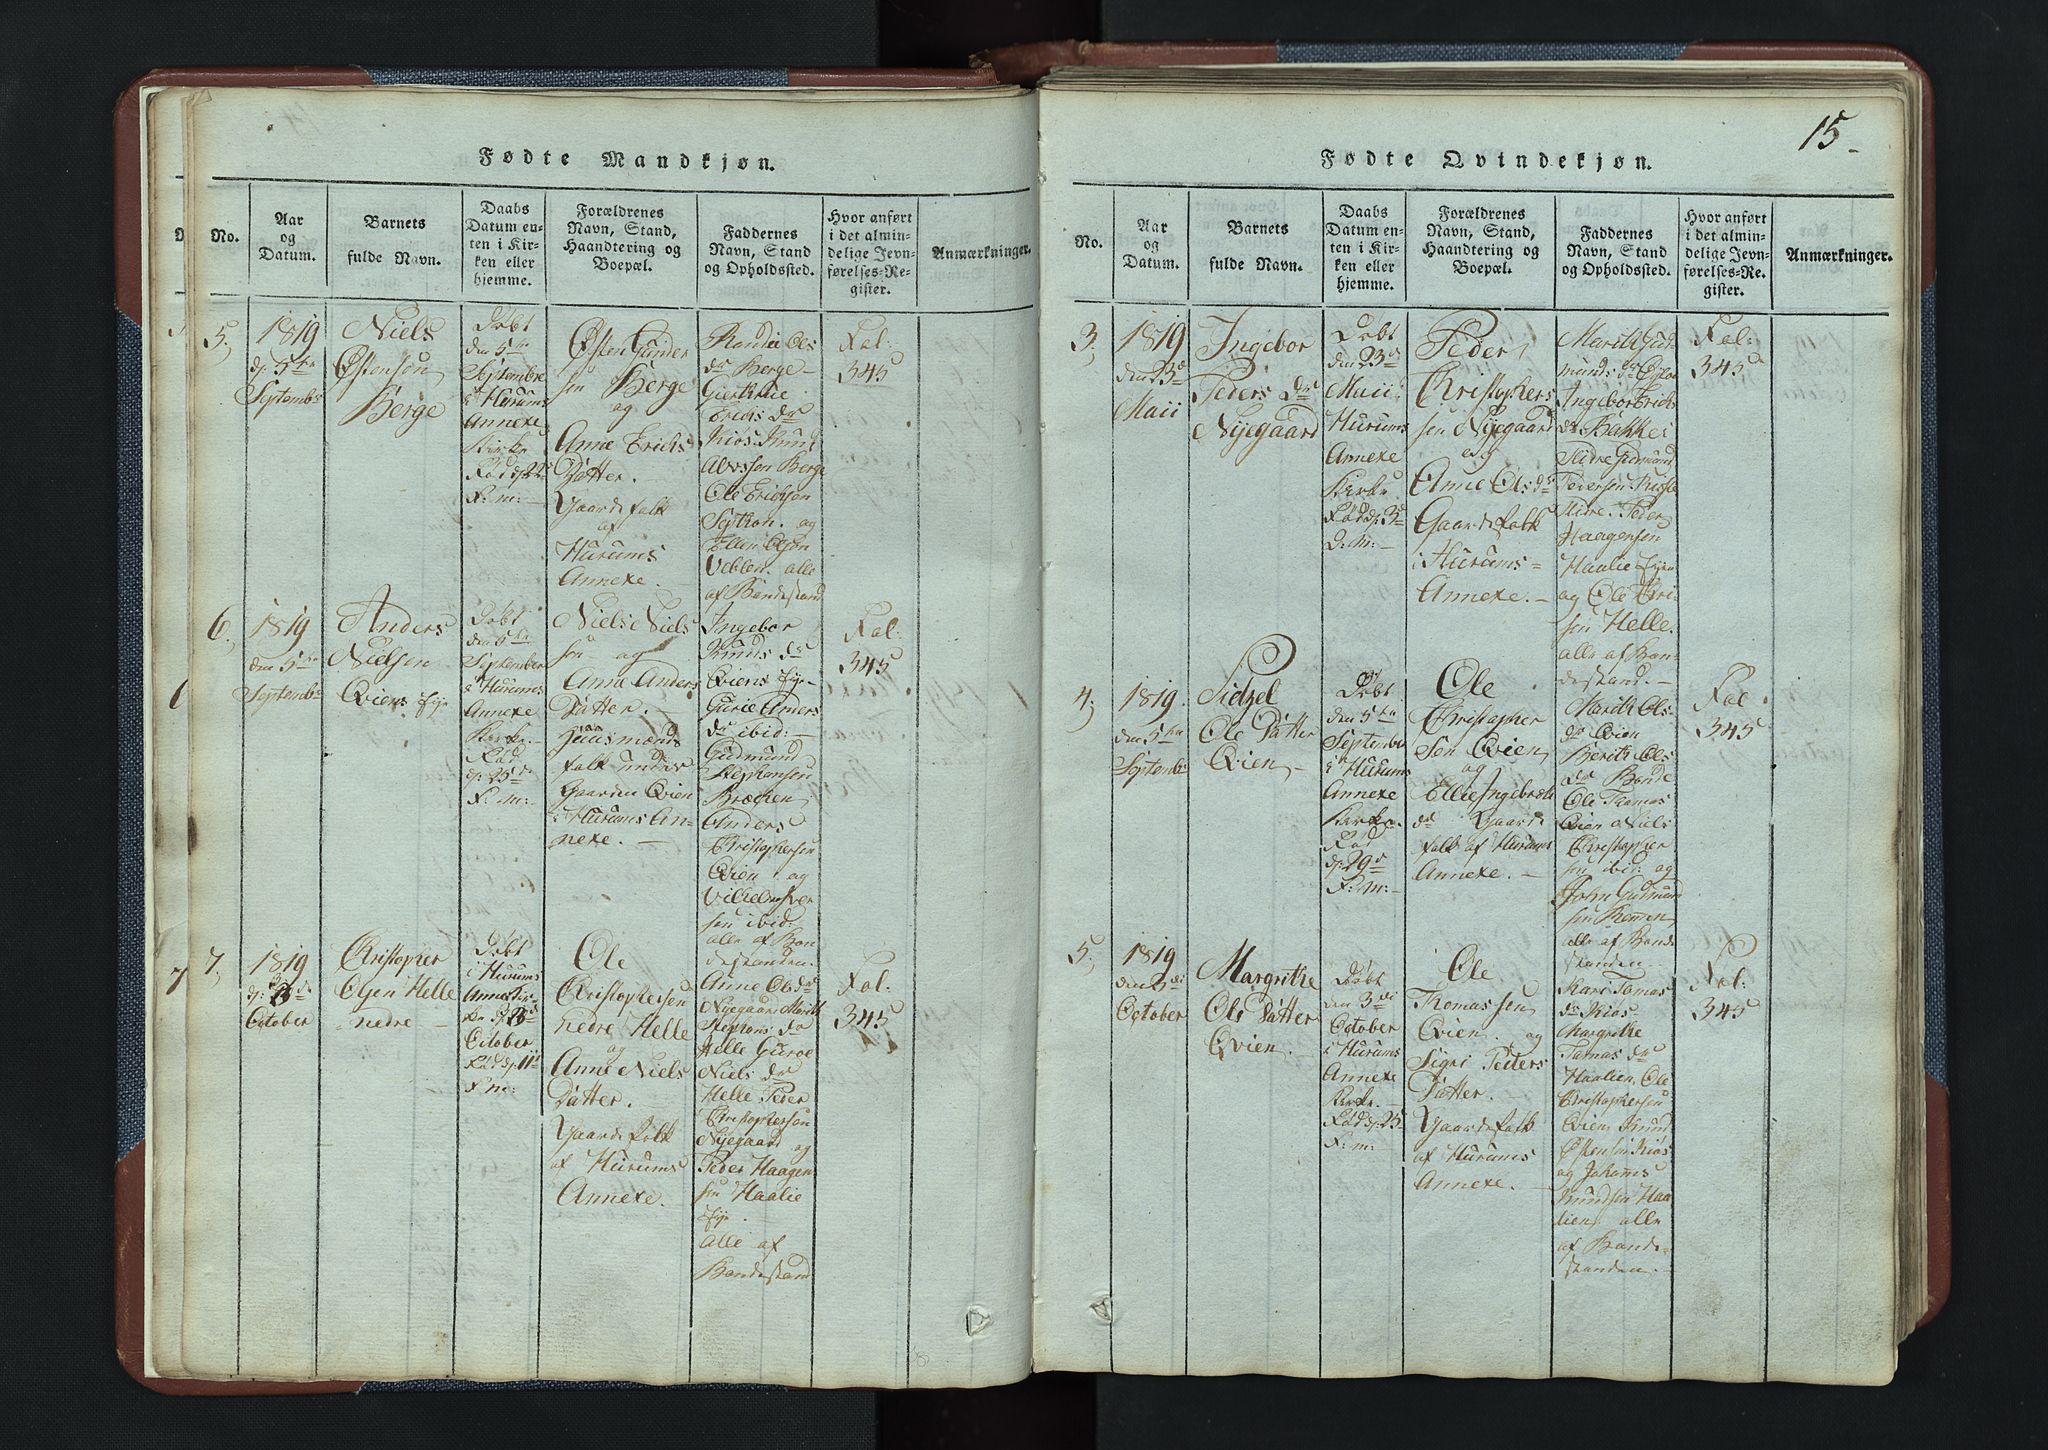 15
Fødte Mandkjøn.
No.
Aar
og
Datum.
Barnets
fulde Navn.
Daabs
Datum en-
ten i Kir-
ken eller
hjemme.
Forældrenes
Navn, Stand,
Haandtering og
Boepæl.
Faddernes
Navn, Stand
og Opholdssted.
Hvor anført
i det almin-
delige Jevn-
førelses-Re-
gister.
Anmærkninger.
5,
1819
d. 5te
Septembr
Niels
Østensøn
Berge
Døbt
den 5te
Septembr
i Hurums
Annexe
Kirke
Fød d. 22d
F: m: –
Østen Gunder
sen Berge
og
Anne Erichs
Datter. –
Gaardsfolk
af
Hurums
Annexe. –
Randie Ols
dr Berge –
Giertrue
Erichs dr
Kiøs. Knud
Berge
Ole Erichsen
og
Ellen Olsen
Veblen. alle
af Bondestand
Fol:
345
6,
1819
den 5te
Septembr
Anders
Nielsen
Qviens Eje
Døbt
den 5te
September
i Hurums
Annexe
Kirke. –
Fød
d. 25d
F: m: –
Niels Niels
søn – og
Anna Anders
Datter. –
Huusmands
folk under
Gaarden Qvien
i Hurums An-
nexe. –
Ingebor
Knuds dr
Qviens Eje –
Gurie Anders
dr ibid: –
Gudmund
Stephensen
Anders
Christophersen
Qvien og
sen ibid:
alle af Bon
destanden. –
Fol:
345
7,
1819
October
Christopher
Olsen Helle
nedre –
Døbt
i Hurums
October
Fød d. 11t
F. m: –
Ole
Christophersen
nedre Helle
og
Anne Niels
Datter. –
Gaardsfolk
af Hurums
Annexe. –
Anne Olsdr
Nijegaard Marith
Helle Guroe
Niels dr
Helle Peder
Christophersen
Nijegaard og
Peder Haagen
sen Haalie
Eje. –
Alle af
Bondestand
Fol:
345
Fødte Qvindekjøn.
No.
Aar
og
Datum.
Barnets
fulde Navn.
Daabs
Datum en-
ten i Kir-
ken eller
hjemme.
Forældrenes
Navn, Stand,
Haandtering og
Boepæl.
Faddernes
Navn, Stand
og Opholdssted.
Hvor anført
i det almin-
delige Jevn-
førelses-Re-
gister.
Anmærkninger.
3,
1819
den 23d
Maii
Ingebor
Peders Dr
Nijegaard
Døbt
den 23d
Maii i
Hurums
Annexe
Kirke
Fød d. 3d
D: M: –
Peder
Christophers
sen Nijegaard
og
Anne Ols dr
Gaardsfolk
i Hurums –
Annexe. –
Marith Gud
munds dr
Ingebor Erichs
dr Bakke i
Slidre Gudmund
Pedersen
Slidre. Peder
Haagensen
Haalie Eje
og Ole Eri
sen Helle.
alle af Bon-
destand. –
Fol:
345
4,
1819
den 5te
Septembr
Sidzel
Ole Datter
Qvien –
Døbt
den 5te
September
i Hurums
Annexe
Kirke. –
Fød
d. 29d
F: M: –
Ole
Christopher
Sen Qvien
og
Ellie Ingebrets
dr Gaards
folk af Hurums
Annexe. –
Marith Ols-
dr Qvien
Berith Ols
dr Bonde
Ole Thomas
Qvien Niels
Christopher
sen ibid: og
John Gudmund
sen Remen
alle af Bonde
standen. –
Fol.
345
5,
1819
den 3di
October
Margrithe
Ole Datter
Qvien. –
Døbt
den 3di
October
i Hurums
Annexe
Kirke. –
Fød d. 25
F: m: –
Ole
Thomassen
Qvien. og
Sigri Peders
Datter. –
Gaardsfolk
af Hurums
Annexe. –
Mari Tomas
dr Kiøs
Margrithe
Tomas dr
Haalien. Ole
Christophersen
Qvien. Knud
Østensøn Kiøs
og Johannes
Knudsen Haa
lien alle
af Bonde-
standen. –
Fol:
345